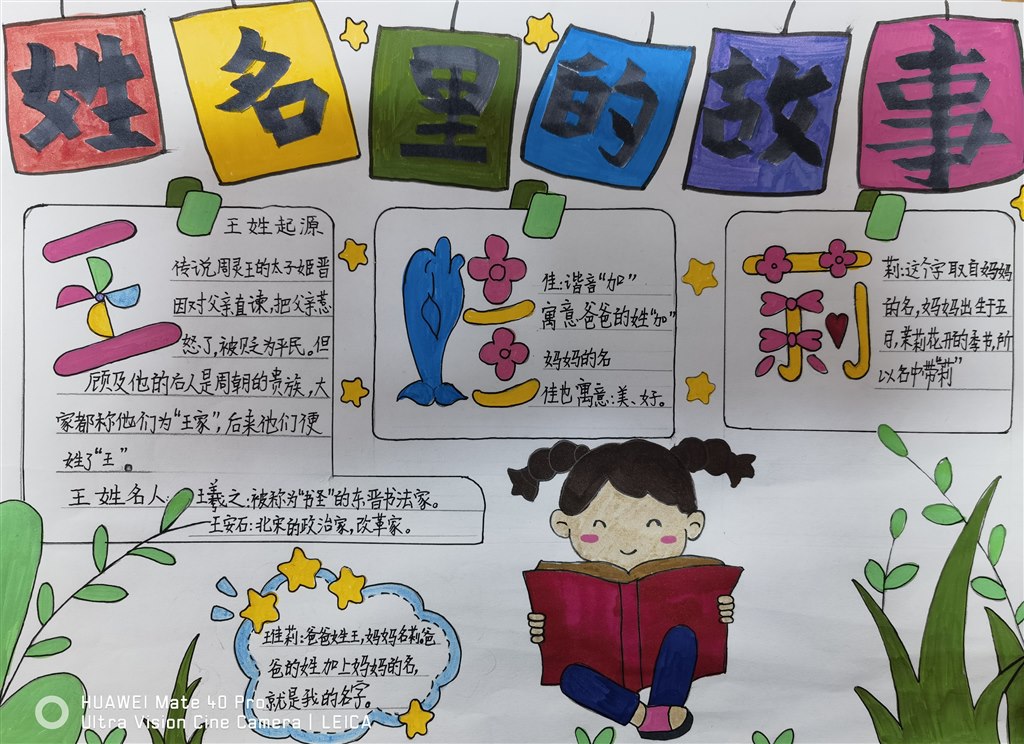 姓名里的故事
王
王姓起源
传说周灵王的太子姬晋
因对父亲直谏,把父亲惹
怒了,被贬为平民。但
顾及他的后人是周朝的贵族,大
家都称他们为“王家”,后来他们便
姓了“王”。
王姓名人:王羲之:被称为“书圣”的东晋书法家。
王安石:北宋的政治家,改革家。
佳
佳:谐音“加”
寓意:爸爸的姓“加”
妈妈的名
佳也寓意:美、好。
莉
莉:这个字取自妈妈
的名,妈妈出生于五
月,茉莉花开的季节,所
以名中带“莉”
王佳莉:爸爸姓王,妈妈名莉。爸
爸的姓加上妈妈的名,
就是我的名字。
HUAWEI Mate 40 Pro
Ultra Vision Cine Camera | LEICA